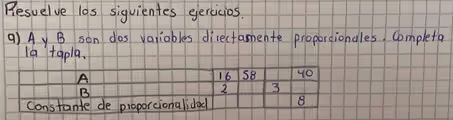 Resuelve los siguientes ejercicios.
9) A y B son dos variables directamente proporcionales. Completa
la tapla.
A 16 58 40
B 2 3
Constante de proporcionalidad 8